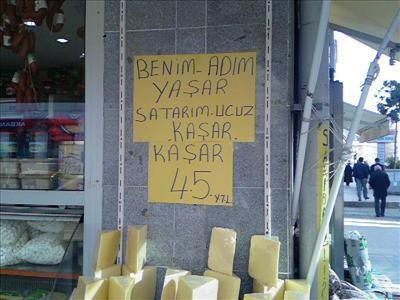 BENİM-ADIM
YAŞAR
SATARIM.UCUZ
KAŞAR.
KAŞAR
45.YTL
AKBANK